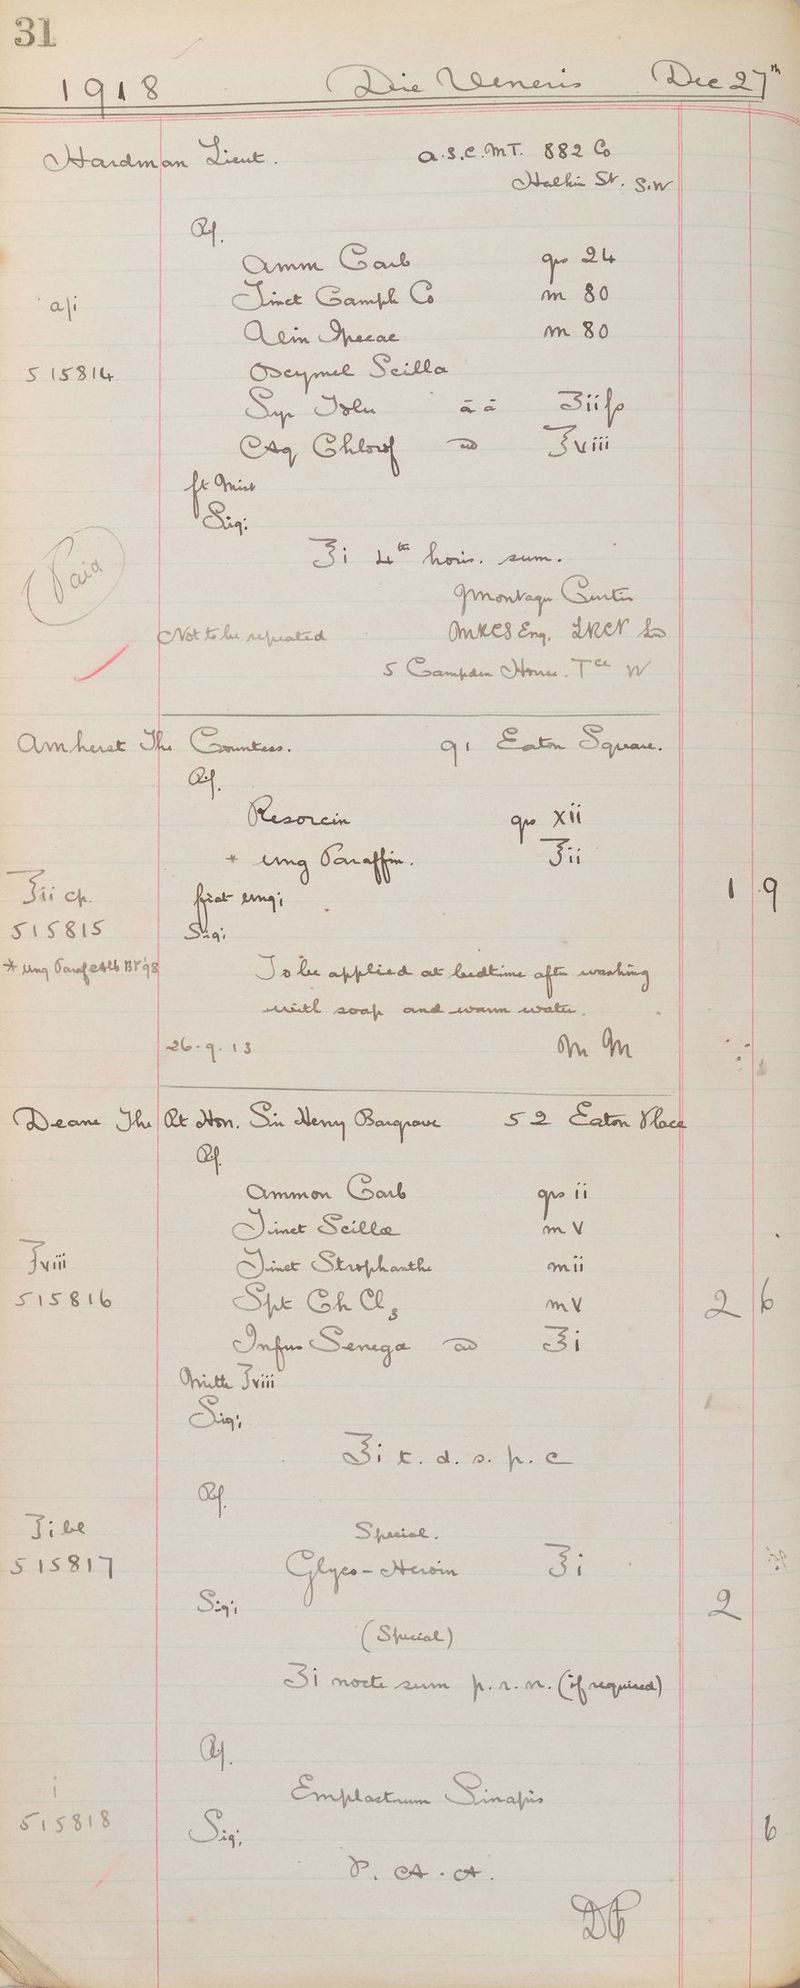 31
1918 Die Veneris Dec 27th
Hardman Lieut. A.S.C. M.T. 882 Co
Halkin St. S.W
Rx.
Amm Carb grs 24
a/i Tinct Camph Co m 80
Vin Ipecac m 80
515814 Oxymel Scilla
Syr Tolu āā ʒiifs
Aq Chlorof ad ℥viii
ft Mist
Sig:
Paid
ʒi 4th horis. sum.
Montagu Curtis
Not to be repeated MRCS Eng. LRCP Lo
5 Campden House. Tce W
Amherst The Countess. 91 Eaton Square.
Rx.
Resorcin grs xii
* ung Paraffin. ℥ii
℥ii cp. fiat ung; 1 9
515815 Sig;
* ung Paraf Alb BP '98 To be applied at bedtime after washing
with soap and warm water.
26.9.13 M M
Deane The Rt Hon. Sir Henry Bargrave 52 Eaton Place
Rx.
Ammon Carb grs ii
Tinct Scillæ m V
℥viii Tinct Strophanthi m ii
515816 Spt Ch Cl3 m V 2 6
Infus Senegæ ad ℥i
Mitte ℥viii
Sig;
℥i t. d. s. p. c
Rx.
℥i bl Special.
515817 Glyco-Heroin ℥i
Sig; 2
(Special)
ʒi nocte sum p.r.n. (if required)
Rx.
i Emplastrum Sinapis
515818 Sig; 6
P. A. A.